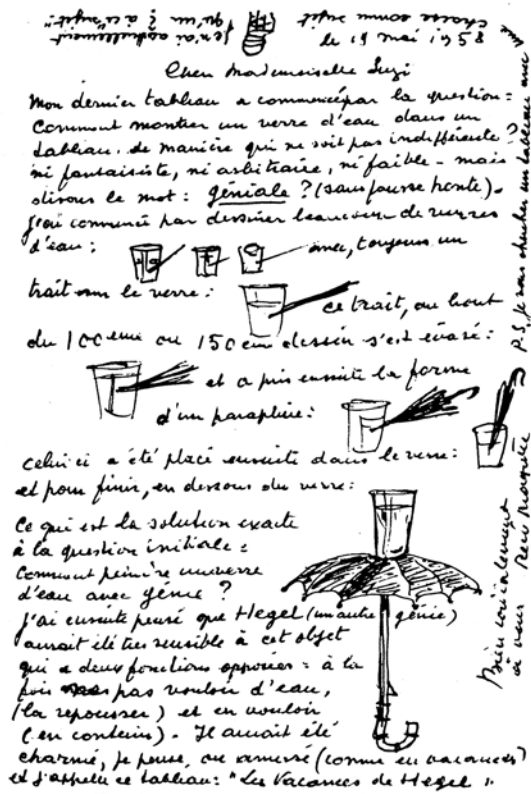 le 19 mai 1958
Chère Mademoiselle Suzi
Mon dernier tableau a commencé par la question :
comment montrer un verre d'eau dans un
tableau de manière qui ne soit pas indifférente ?
ni fantaisiste, ni arbitraire, ni faible - mais
disons le mot : géniale ? (sans fausse honte).
J'ai commencé par dessiner beaucoup de verres
d'eau :
avec, toujours un
trait sur le verre :
ce trait, au bout
du 100eme ou 150em dessin s'est évasé :
et a pris ensuite la forme
d'un parapluie :
celui ci a été placé ensuite dans le verre :
et pour finir, en dessous du verre :
Ce qui est la solution exacte
à la question initiale :
comment peindre un verre
d'eau avec génie ?
J'ai ensuite pensé que Hegel (un autre génie)
aurait été très sensible à cet objet
qui a deux fonctions opposées : à la
fois pas vouloir d'eau,
(la repousser) et en vouloir
(en contenir). Il aurait été
charmé, je pense, ou amusé (comme en vacances)
et j'appelle ce tableau : "Les Vacances de Hegel".
Bien cordialement
à vous René Magritte
P.S. Je vais chercher un tableau avec une
chaise comme sujet
Je n'ai actuellement
qu'un
à ce sujet